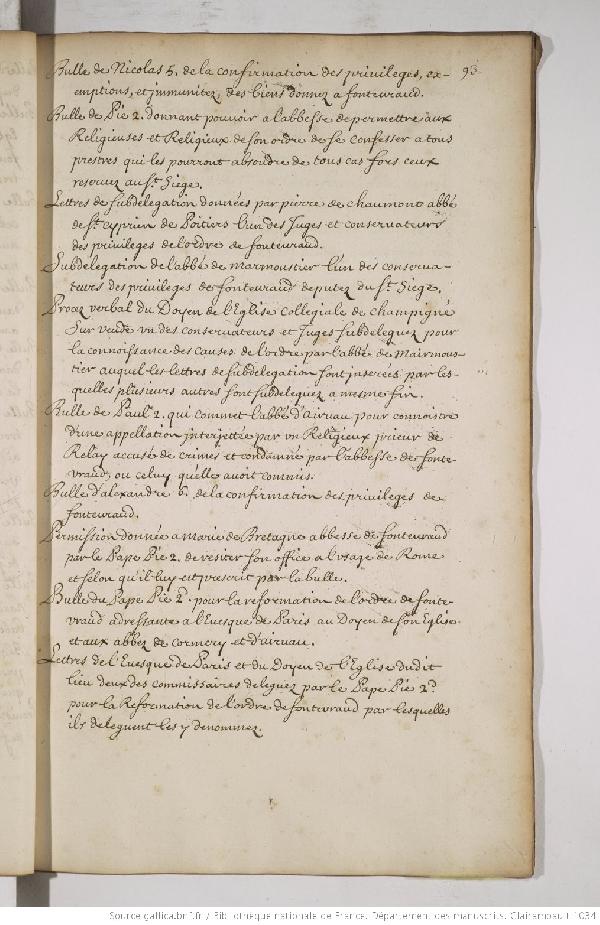 93
Bulle de Nicolas 5. de la confirmation des privileges, ex-
emptions, et jmmunitez des biens donnez a fontevraud.
Bulle de Pie 2. donnant pouvoir a l'abbesse de permettre aux
Religieuses et Religieux de son ordre de se confesser a tous
prestres qui les pourront absoudre de tous cas fors ceux
reservez au St. Siege.
Lettres de subdelegation données par pierre de chaumont abbé
de St. cyprien de Poitiers l'un des Juges et conservateurs
des privileges de l'ordre de fontevraud.
Subdelegation de l'abbé de marmoustier l'un des conserva-
teurs des privileges de fontevraud deputez du St. Siege.
Procez verbal du Doyen de l'Eglise collegiale de champigné
sur veude un des conservateurs et Juges subdeleguez pour
la connoissance des causes de l'ordre par l'abbé de Mairmous-
tier auquil les lettres de subdelegation sont jnserées par les-
quelles plusieurs autres sont subdeleguez a mesme fin.
Bulle de Paul 2. qui commet l'abbé d'airvau pour connoistre
d'une appellation jnterjettée par un Religieux prieur de
Relay accusé de crimes et condamné par l'abbesse de fonte-
vraud, ou celuy qu'elle avoit commis.
Bulle d'alexandre 6. de la confirmation des privileges de
fontevraud.
Permission donnée a marie de Bretagne abbesse de fontevraud
par le Pape Pie 2. de resiter son office a l'vsage de Rome
et selon qu'il luy est prescrit par la bulle.
Bulle du Pape Pie 2d. pour la reformation de l'ordre de fonte-
vraud adressante a l'Euesque de Paris au Doyen de son Eglise
et aux abbez de cormery et d'airvau.
Lettres de l'Euesque de Paris et du Doyen de l'Eglise dudit
lieu deux des commissaires deleguez par le Pape Pie 2d.
pour la Reformation de l'ordre de fontevraud par lesquelles
ils deleguent les y denommez.
Source gallica.bnf.fr / Bibliothèque nationale de France. Département des manuscrits. Clairambault 1034